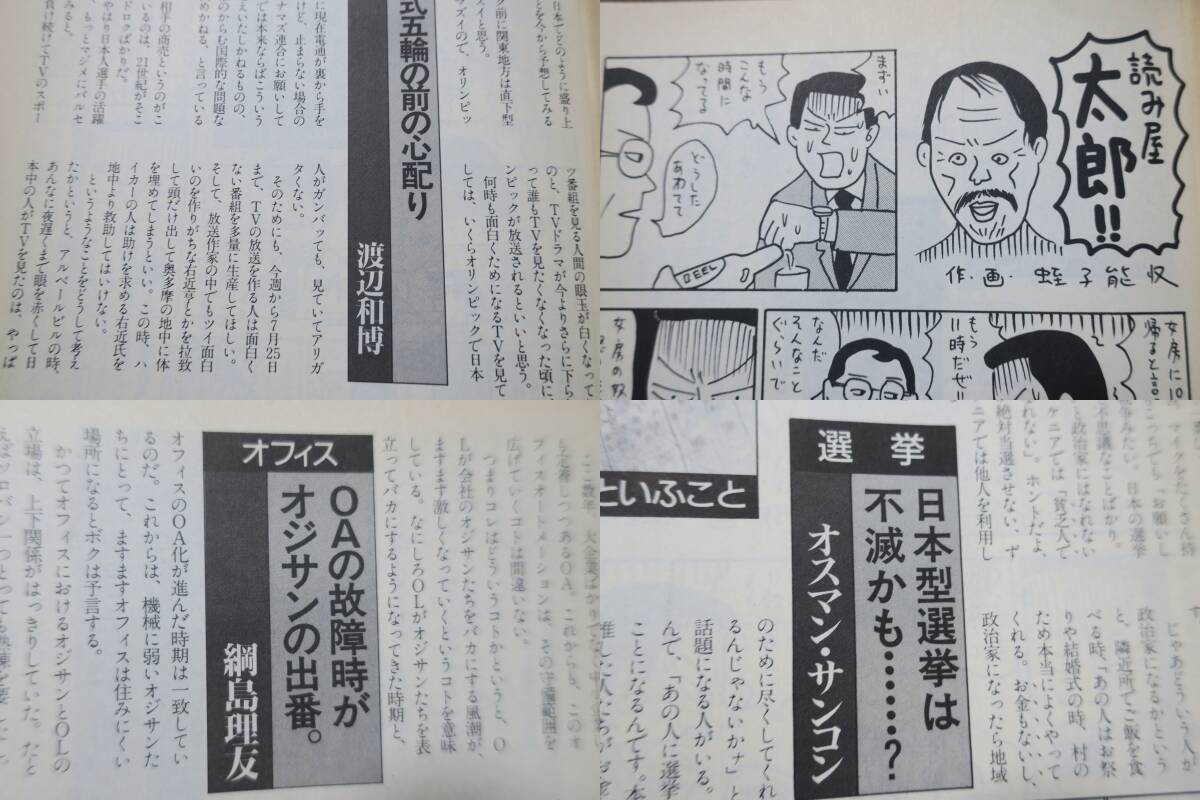 日本でどのように盛り上
とを今から予想してみる
前に関東地方は直下型
スイと思う。
マズイので、オリンピッ
式五輪の前の心配り
渡辺和博
に現在電通が裏から手を
けど、止まらない場合の
ナマズ連合にお願いして
では本来ならばこういう
えいたしかねるものの、
のからむ国際的な問題な
めかねる、と言っている
相手の商売というのがこ
いるのは、21世紀がそこ
ドロクばかりだ。
やはり日本人選手の活躍
もっとマジメにバルセ
みると。
負け続けてTVのスポー
ツ番組を見る人間の眼玉が白くなって
のと、TVドラマが今よりさらに下ら
って誰もTVを見たくなくなった頃に、
ンピックが放送されるといいと思う。
何時も面白くためになるTVを見て
しては、いくらオリンピックで日本
人がガンバッても、見ていてアリガ
タくない。
そのためにも、今週から7月25日
まで、TVの放送を作る人は面白く
ない番組を多量に生産してほしい。
そして、放送作家の中でもツイ面白
いのを作りがちな右近亨とかを拉致
して頭だけ出して奥多摩の地中に体
を埋めてしまうといい。この時、ハ
イカーの人は助けを求める右近氏を
地中より救助してはいけない。
というようなことをどうして考え
たかというと、アルベールビルの時、
あんなに夜遅くまで眼を赤くして日
本中の人がTVを見たのは、やっぱ
読み屋
太郎!!
作・画・蛭子能収
まずい
もう
こんな
時間に
なってる
どうした
あわてて
REEL
女房に10
帰ると言
もう
11時だぜ!!
なんだ
そんなこと
ぐらいで
女房の奴
大企業ばかりでな
ここ数年
しつつあるOA。これから、このオ
フィスオートメーションは、その守備範囲を
広げていくコトは間違いない。
つまりコレはどういうコトかというと、O
Lが会社のオジサンたちをバカにする風潮が、
ますます激しくなっていくというコトを意味
している。なにしろOLがオジサンたちを表
立ってバカにするようになってきた時期と、
オフィス
OAの故障時が
オジサンの出番。
綱島理友
オフィスのOA化が進んだ時期は一致してい
るのだ。これからは、機械に弱いオジサンた
ちにとって、ますますオフィスは住みにくい
場所になるとボクは予言する。
かつてオフィスにおけるオジサンとOLの
立場は、上下関係がはっきりしていた。たと
えばソロバン一つとっても
といふこと
選挙
日本型選挙は
不滅かも………?
オスマン・サンコン
っちでも「お願いし
みたい。日本の選挙
不思議なことばかり。
と政治家にはなれない
ケニアでは「貧乏人で
れない」。ホントだよ。
絶対当選させない、ず
ニアでは他人を利用し
じゃあどういう人が
政治家になるかという
と、隣近所でご飯を食
べる時、あの人はお祭
りや結婚式の時、村の
ため本当によくやって
くれる。お金もないし、
政治家になったら地域
のために尽くしてくれ
るんじゃないかナ」と
話題になる人がいる。
んで、「あの人に選挙
ことになるんです。本
推した人たちが